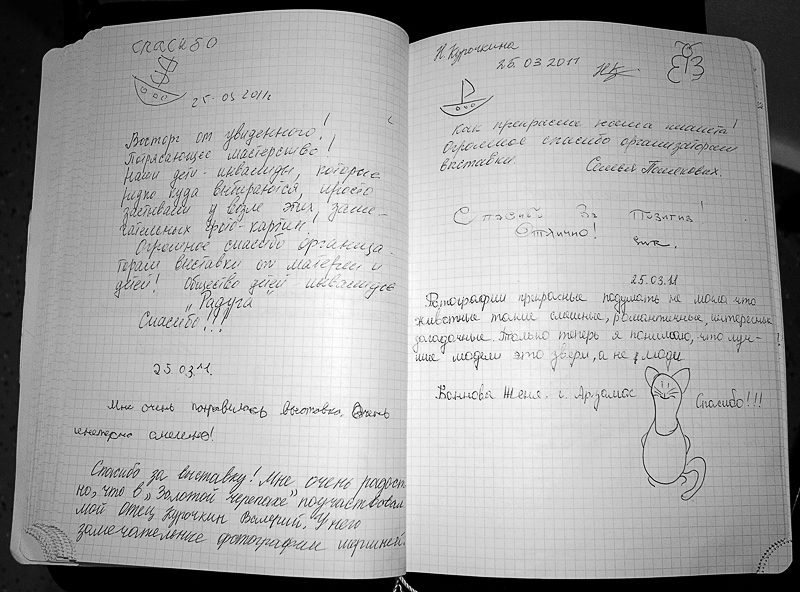 спасибо
25-03-2011г
Восторг от увиденного!
Потрясающее мастерство!
Наши дети-инвалиды, которые
редко куда выбираются, просто
застывали у возле этих, заме-
чательных фото-картин.
Огромное спасибо организа-
торам выставки от матерей и
детей! Общество детей инвалидов
"Радуга"
Спасибо!!!
25.03.11.
Мне очень понравилась выставка. Очень
Спасибо за выставку! Мне очень радост
но, что в "Золотой черепахе" поучаствовал
мой отец Курочкин Валерий. У него
замечательные фотографии
Н. Курочкина
26.03 2011
Как прекрасна наша планета!
Огромное спасибо организаторам
выставки
Семья
Спасибо За Позитив!
Отлично!
25.03.11
Фотографии прикрасные подумать не могла что
животные такие смешные, романтичные, интересные
загадочные. Только теперь я понимаю, что луч-
шие модели это звери, а не люди
Коннова Женя. г. Арзамас
Спасибо!!!